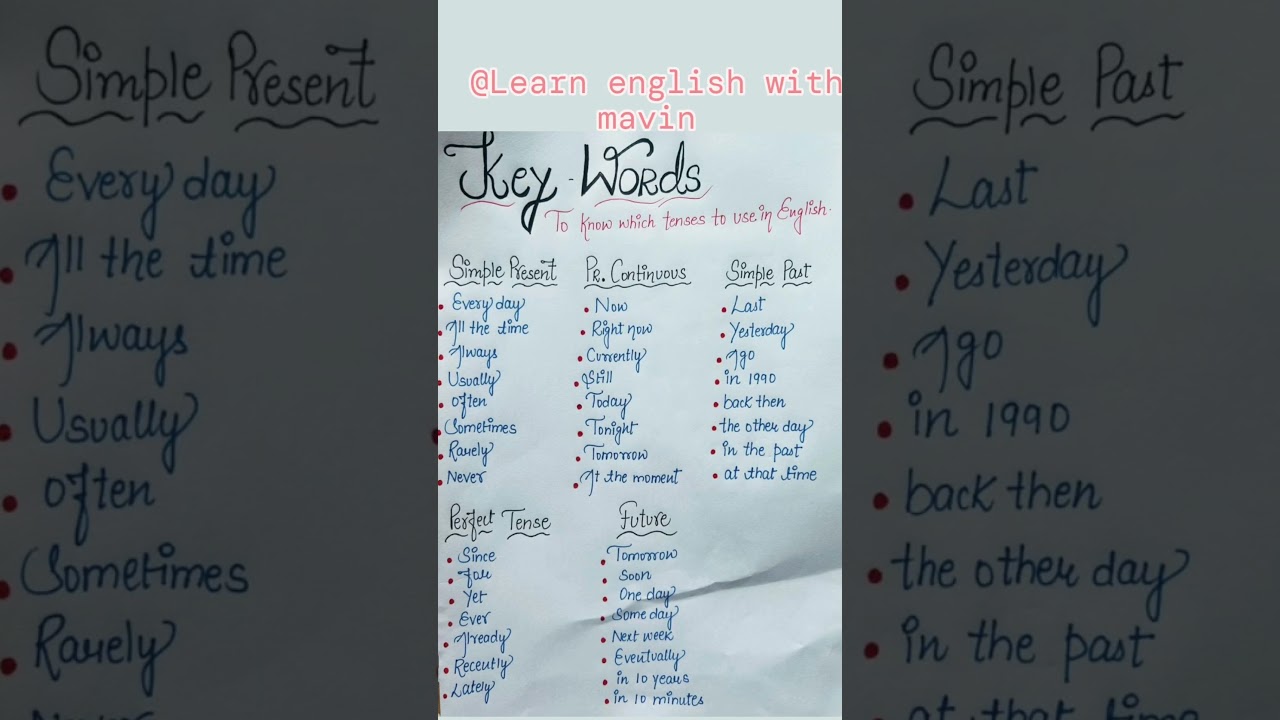 Simple Present
Every day
All the time
Always
Usually
Often
Sometimes
Rarely
@Learn english with
mavin
Key-Words
To know which tenses to use in English.
Simple Present
Every day
All the time
Always
Usually
Often
Sometimes
Rarely
Never
Pr. Continuous
Now
Right now
Currently
Still
Today
Tonight
Tomorrow
At the moment
Simple Past
Last
Yesterday
Ago
in 1990
back then
the other day
in the past
at that time
Perfect Tense
Since
For
Yet
Ever
Already
Recently
Lately
Future
Tomorrow
Soon
One day
Some day
Next week
Eventually
in 10 years
in 10 minutes
Simple Past
Last
Yesterday
Ago
in 1990
back then
the other day
in the past
at that time